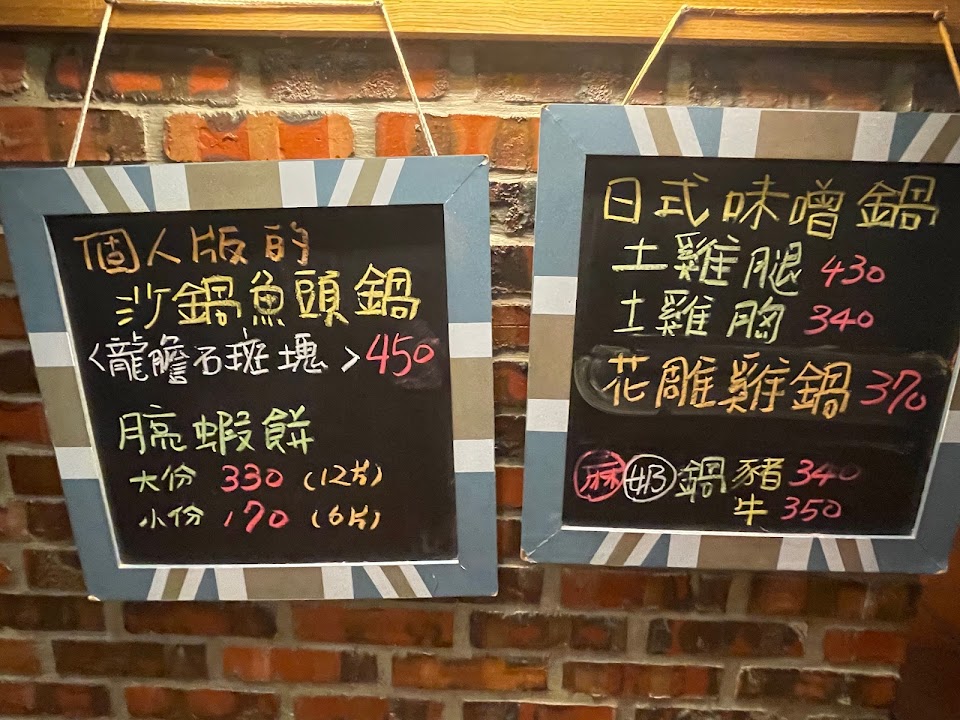 個人版的
沙鍋魚頭鍋
<龍膽石斑塊>450
月亮蝦餅
大份 330 (12片)
小份 170 (6片)
日式味噌鍋
土雞腿 430
土雞胸 340
花雕雞鍋 370
麻 鍋 豬 340
牛 350